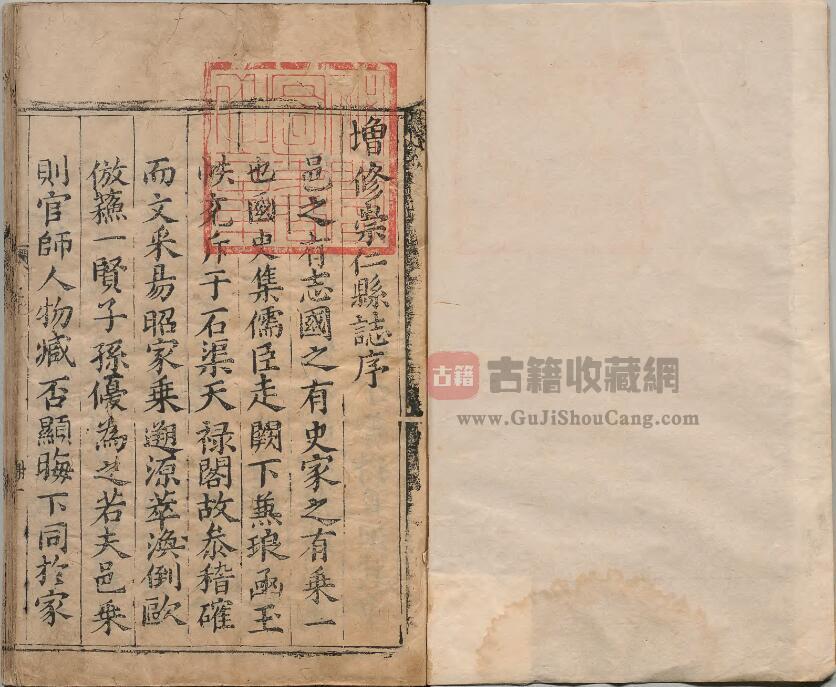 增修崇仁縣誌序
邑之有志國之有史家之有乗一
也國史集儒臣走闕下兼琅函玉
帙充斥于石渠天禄閣故叅稽確
而文采昜昭家乗遡源萃渙倒歐
倣蘓一賢子孫優為之若夫邑乗
則官師人物臧否顯晦下同於家
古籍
古籍收藏網
www.GuJiShouCang.com